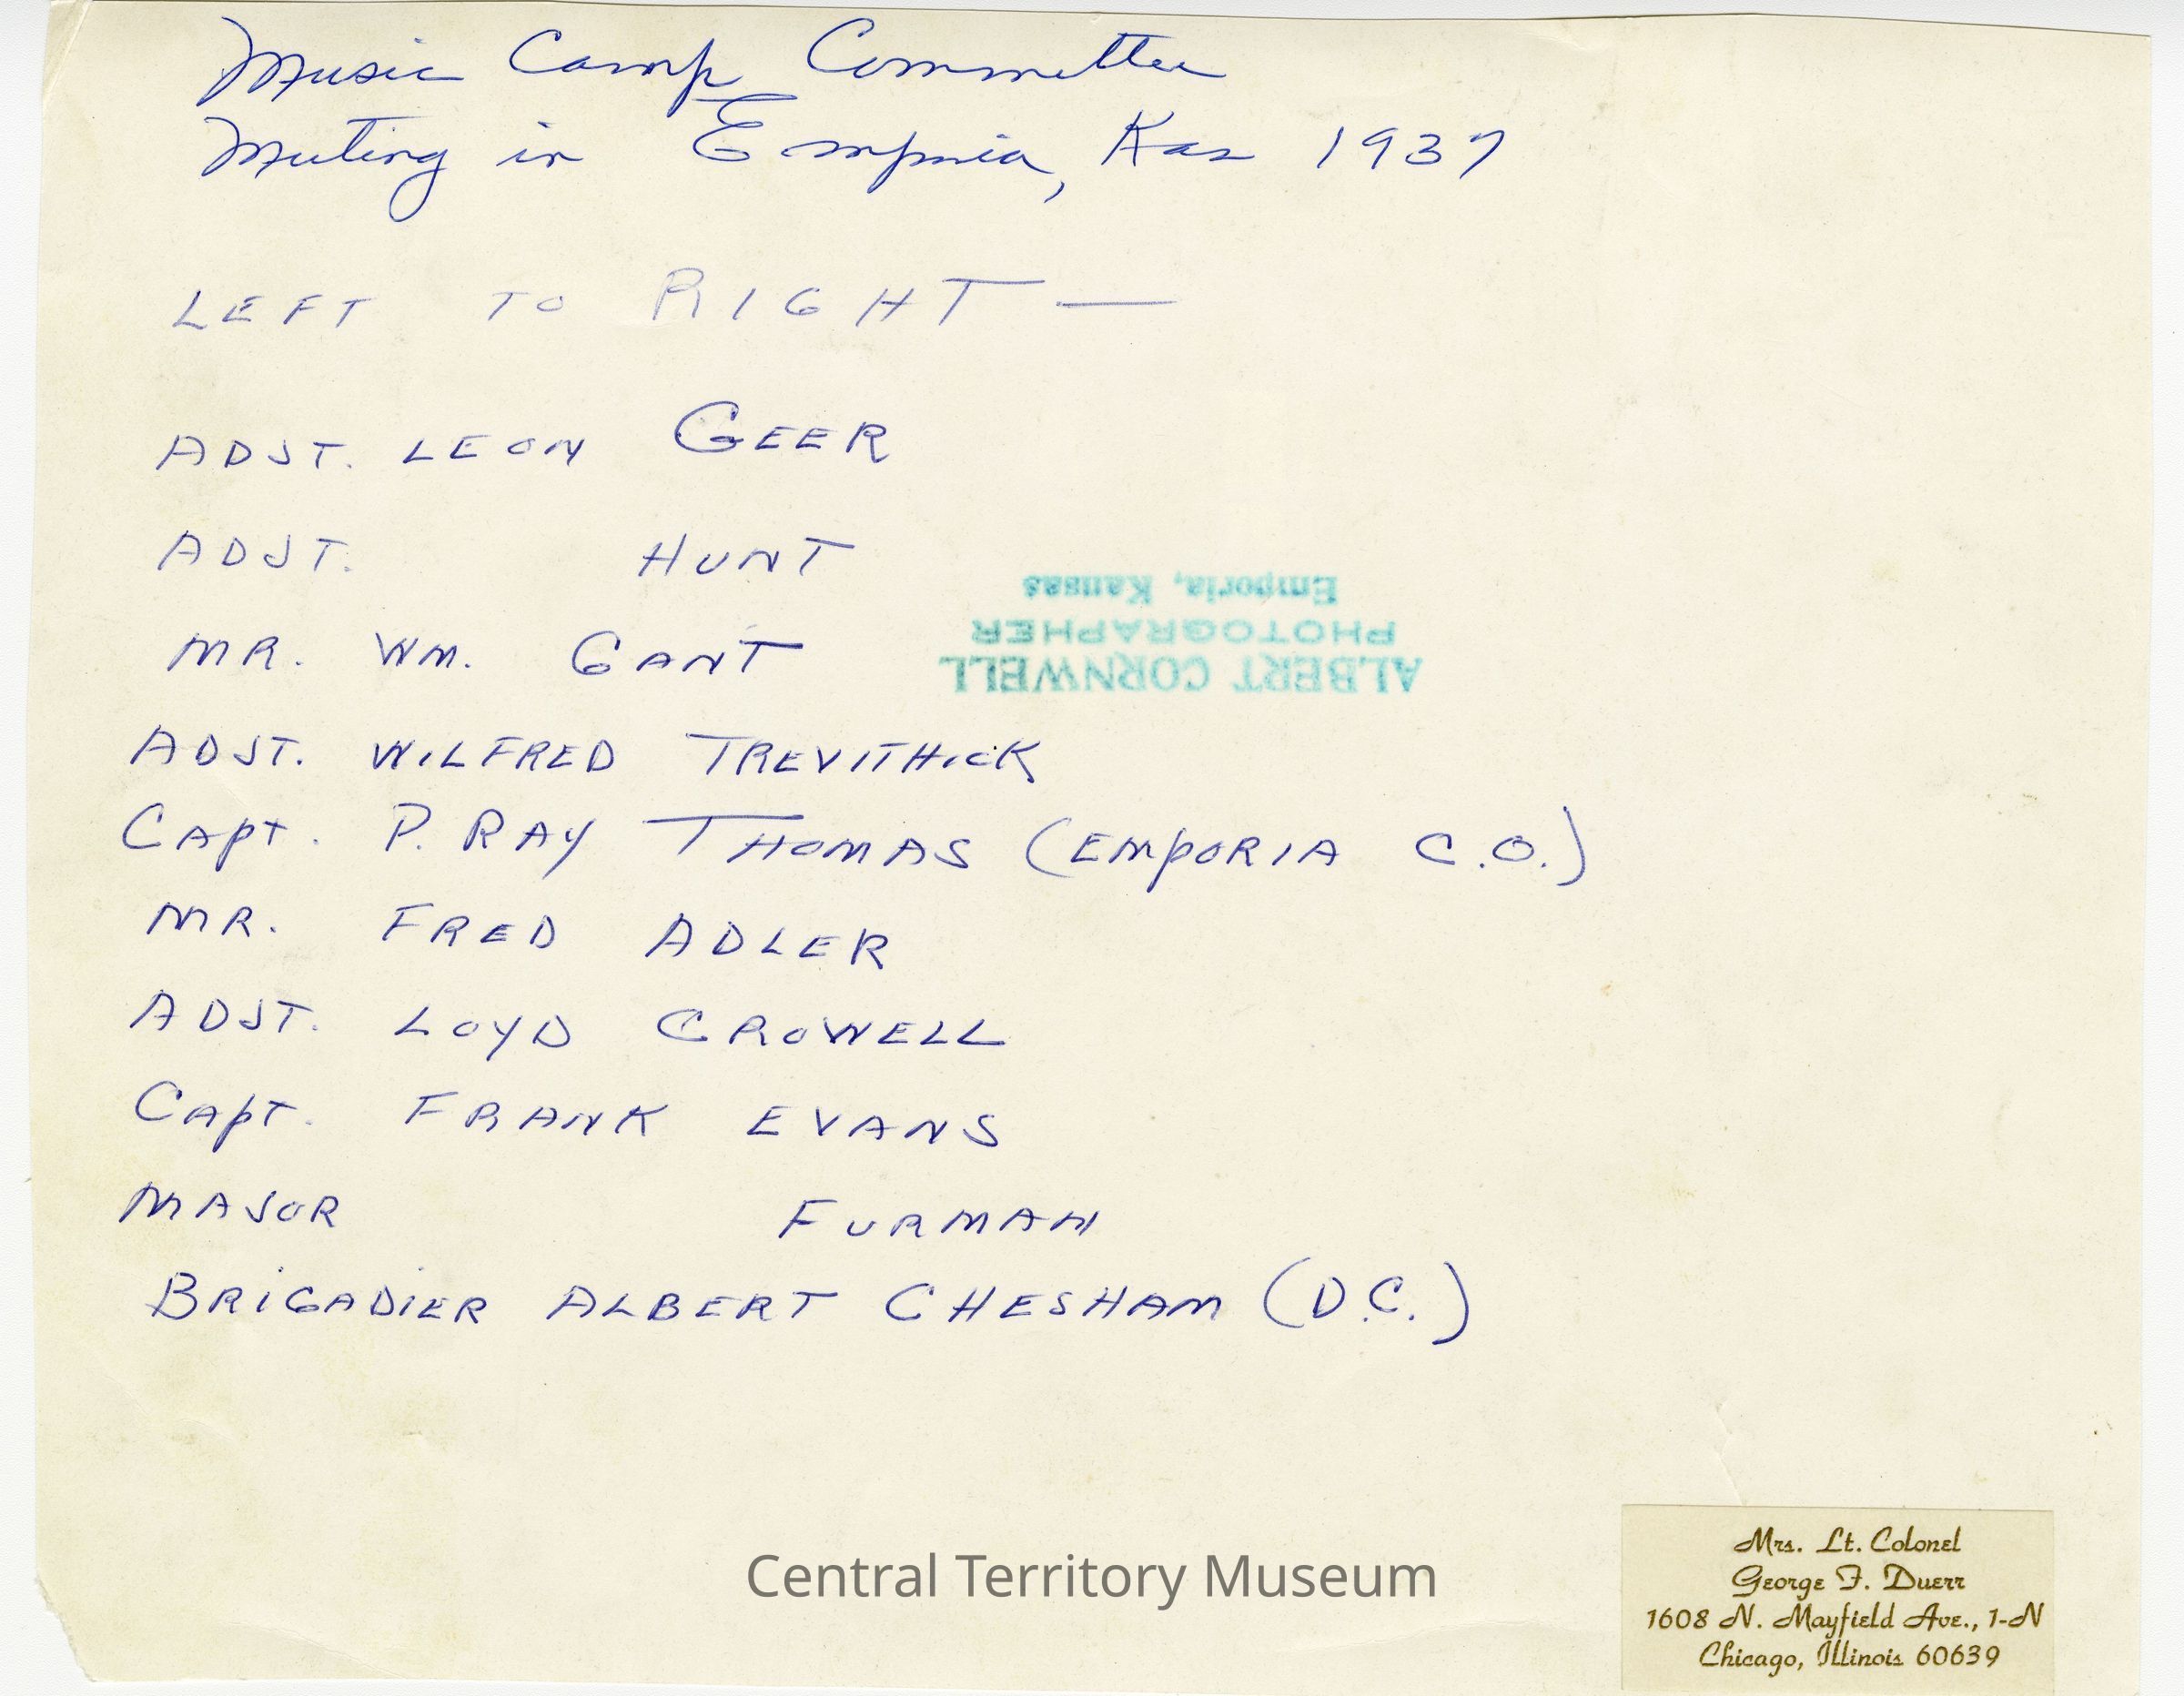 Music Camp Committee
Meeting in Emporia, Kas 1937
LEFT TO RIGHT —
ADJT. LEON GEER
ADJT. HUNT
MR. WM. GANT
ADJT. WILFRED TREVITHICK
CAPT. P. RAY THOMAS (EMPORIA C.O.)
MR. FRED ADLER
ADJT. LOYD CROWELL
CAPT. FRANK EVANS
MAJOR FURMAN
BRIGADIER ALBERT CHESHAM (D.C.)
ALBERT CORNWELL
PHOTOGRAPHER
Emporia, Kansas
Central Territory Museum
Mrs. Lt. Colonel
George F. Duerr
1608 N. Mayfield Ave., 1-N
Chicago, Illinois 60639